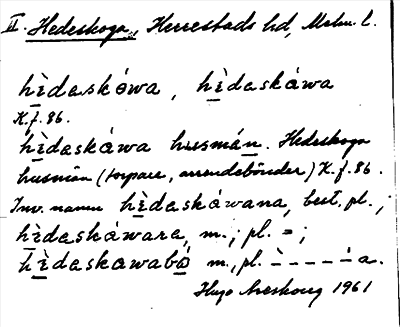 II. Hedeskoga, Herrestads hd, Malm. l.
hèdaskówa, hèdaskáwa
K.f. 86.
hèdaskáwa husmán. Hedeskoga
husmän (torpare, arrendebönder) K.f. 86.
Inv. namn hèdaskáwana, best. pl.;
hèdaskáwara, m.; pl. =;
hèdaskawabo m., pl. ̀ – – – – ́ a.
Hugo Areskoug 1961